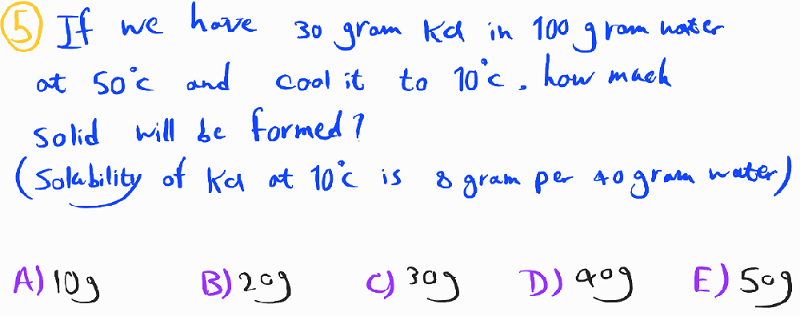 5 If we have 30 gram Kcl in 100 gram water
at 50°c and cool it to 10°c. how much
solid will be formed?
(Solubility of Kcl at 10°c is 8 gram per 40 gram water)
A) 10g B) 20g C) 30g D) 40g E) 50g